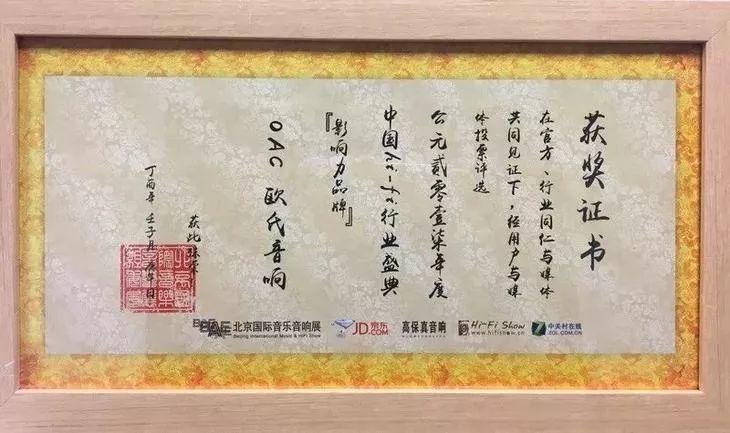 获奖证书
在官方、行业同仁与媒体
共同见证下，经用户与媒
体投票评选
公元贰零壹柒年度
中国hi-fi行业盛典
『影响力品牌』
OAC 欧氏音响
获此殊荣
丁酉年 壬子月
北京国际音乐音响展
Beijing International Music & HiFi Show
京东
JD.COM
高保真音响
Hi-Fi Show
www.hifishow.cn
中关村在线
ZOL.COM.CN